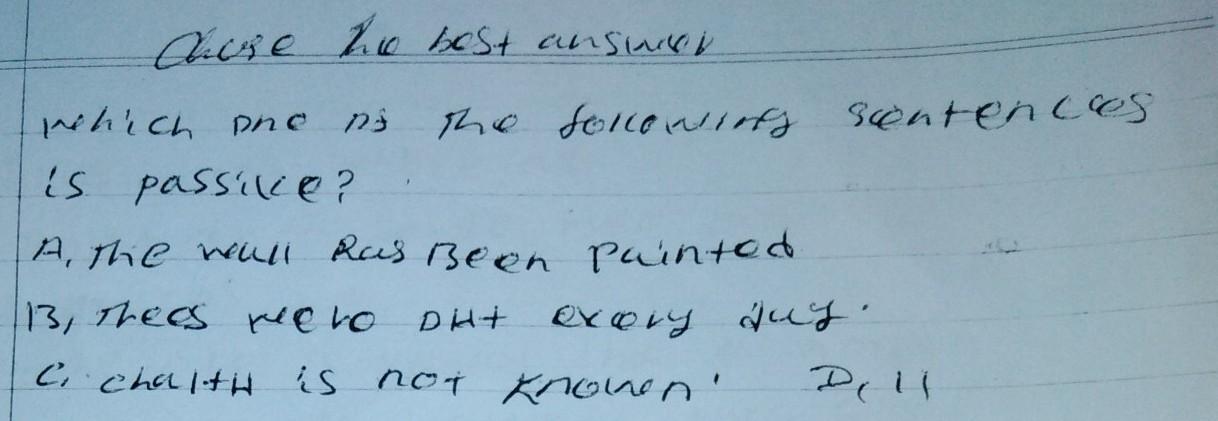 Chose the best answer
which one of the following sentences
is passive?
A, The wall Has Been painted
B, Trees were cut every day.
C, chaltH is not known. D, 11